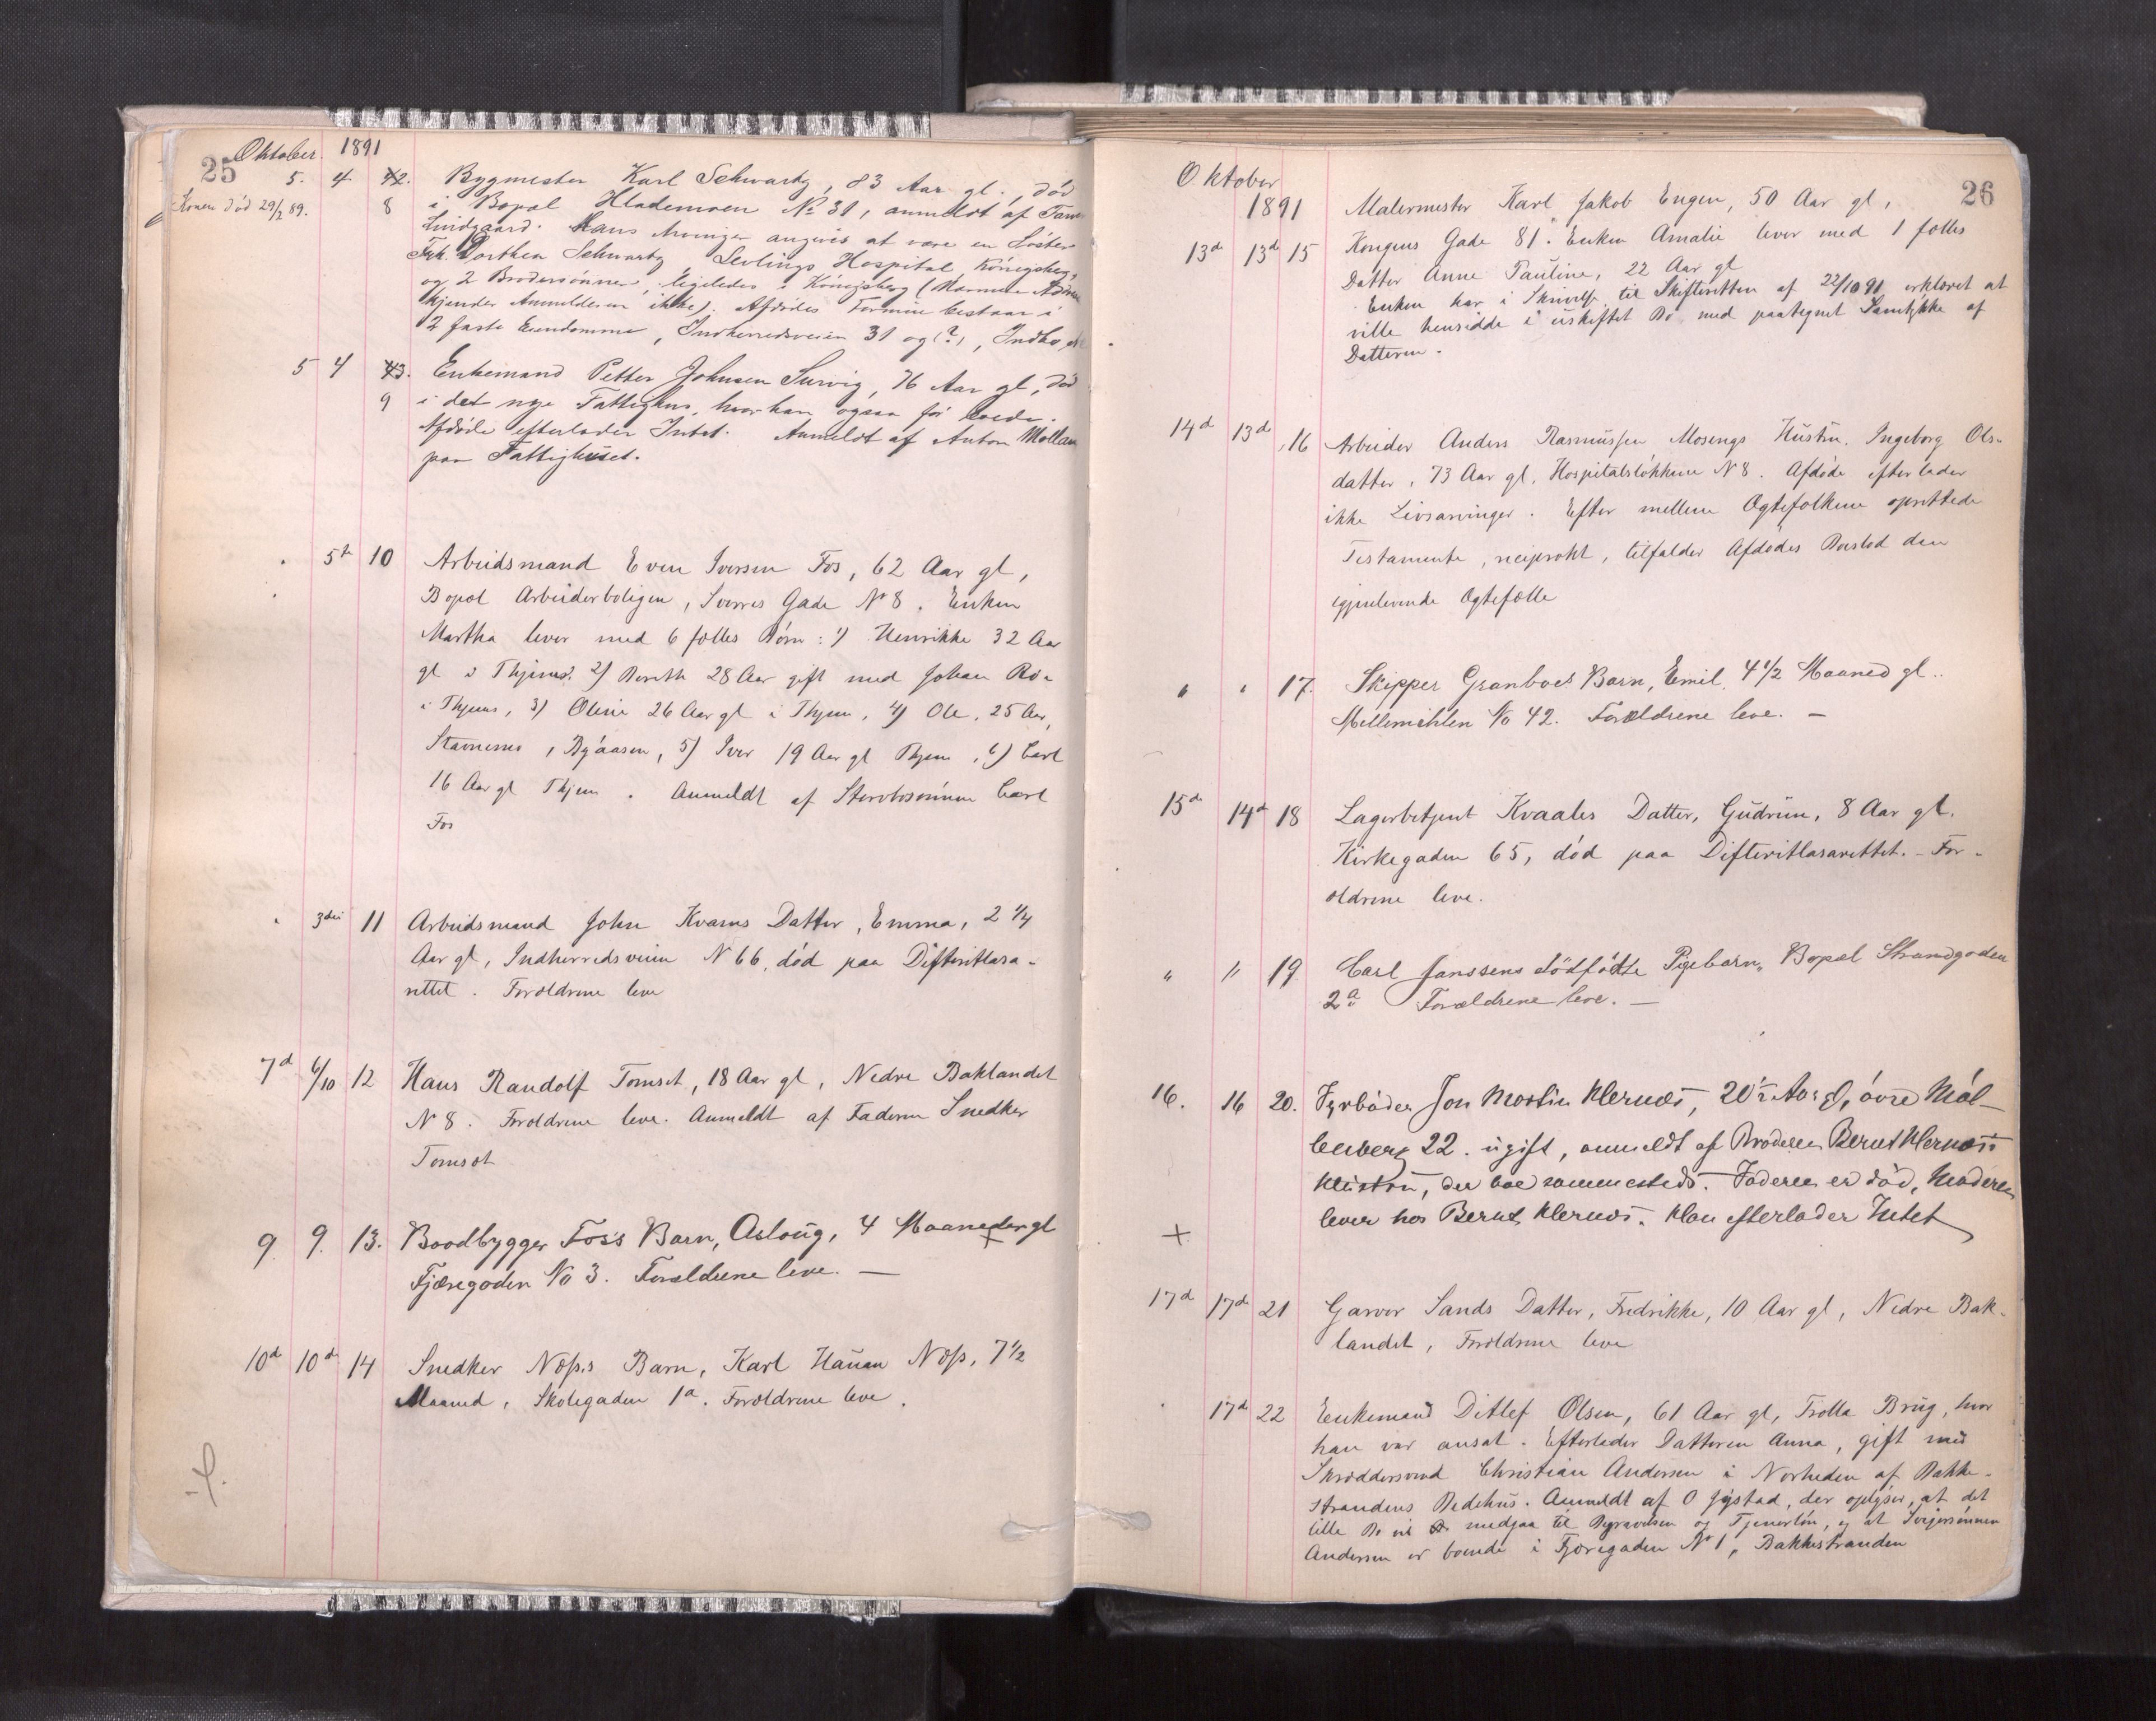 25 Oktober. 1891
5. 4 42. Bygmester Karl Schwartz, 83 Aar gl., död
Konen död 29/2 89. 8 i Bopæl Hlademoen No 31, anmeldt af
Lindgaard. Hans Arvinger angives at være en Söster
Frk. Dorthea Schwartz, Hospital, Königsberg,
og 2 Brodersönner, ligeledes i Königsberg (Navnene
kjender Anmelderen ikke). Afdödes Formue bestaar i
2 faste Eiendomme, Indherredsveien 31 og (?),
5 4 43. Enkemand Petter Johnsen Survig, 76 Aar gl, död
9 i det nye Fattighus, hvor han ogsaa för boede.
Afdöde efterlader Intet. Anmeldt af Anton Mollan
paa Fattighuset.
5t 10 Arbeidsmand Even Iversen Fos, 62 Aar gl,
Bopæl Arbeiderboligen, Sverres Gade No 8. Enken
Martha lever med 6 fælles Börn: 1) Henrikke 32 Aar
gl i Thjeneste 2) Bereth 28 Aar gift med Johan
i Thjem, 3) Oline 26 Aar gl i Thjem, 4) Ole, 25 Aar,
Stavnenes, Byaasen, 5) Iver 19 Aar gl Thjem, 6) Carl
16 Aar gl Thjem. Anmeldt af Stervbosönnen Carl
Fos
3die 11 Arbeidsmand John Kvams Datter, Emma, 2 1/4
Aar gl, Indherredsveien N 66, död paa Difteritlasa-
rettet. Forældrene leve
7d 6/10 12 Hans Randolf Tomset, 18 Aar gl, Nedre Baklandet
N 8. Forældrene leve. Anmeldt af Faderen Snedker
Tomset
9 9. 13. Baadbygger Foss's Barn, Aslaug, 4 Maaneder gl
Fjæregaden No 3. Forældrene leve. —
10d 10d 14 Snedker Næss's Barn, Karl Næss, 7 1/2
Maaned, Skolegaden 1a. Forældrene leve.
Oktober 26
1891 Malermester Karl Jakob Engen, 50 Aar gl,
13d 13d 15 Kongens Gade 81. Enken Amalie lever med 1 fælles
Datter Anne Pauline, 22 Aar gl
Enken har i Skrivelse til Skifteretten af 22/10 91 erklæret at
ville hensidde i uskiftet Bo med paategnet Samtykke af
Datteren.
14d 13d 16 Arbeider Anders Rasmussen Mosengs Hustru, Ingeborg Ols-
datter, 73 Aar gl, Hospitalslökkene N 8. Afdöde efterlader
ikke Livsarvinger. Efter mellem Ægtefolkene oprettede
Testamente, reciprokt, tilfalder Afdödes Boslod den
igjenlevende Ægtefælle
" " 17. Skipper Granboes Barn, Emil, 4 1/2 Maaned gl..
Mellemihlen No 42. Forældrene leve. —
15d 14d 18 Lagerbetjent Kvaales Datter, Gudrun, 8 Aar gl.
Kirkegaden 65, död paa Difteritlasarettet. - For-
ældrene leve.
" " 19 Carl Janssens dödfödte Pigebarn, Bopæl Strandgaden
2a Forældrene leve. —
16. 16 20. Fyrböder Jon Martin Klernæs, 20 1/2 Aar gl, övre Möl-
lenberg 22. ugift, anmeldt af Broderen Bernt Klernæs
der boe sammesteds. Faderen er död, Moderen
lever hos Bernt Klernæs. Han efterlader Intet
17d 17d 21 Garver Sands Datter, Fredrikke, 10 Aar gl, Nedre Bak-
landet, Forældrene leve
17d 22 Enkemand Ditlef Olsen, 61 Aar gl, Trolla Brug, hvor
han var ansat. Efterlader Datteren Anna, gift med
Skræddersvend Christian Andersen i Nærheden af Bakke-
strandens Bedehus. Anmeldt af O Jystad, der oplyser, at det
lille Bo vil medgaa til Begravelsen og Tjenerlön, og at Svigersönnen
Andersen er boende i Fjæregaden No 1, Bakkestranden